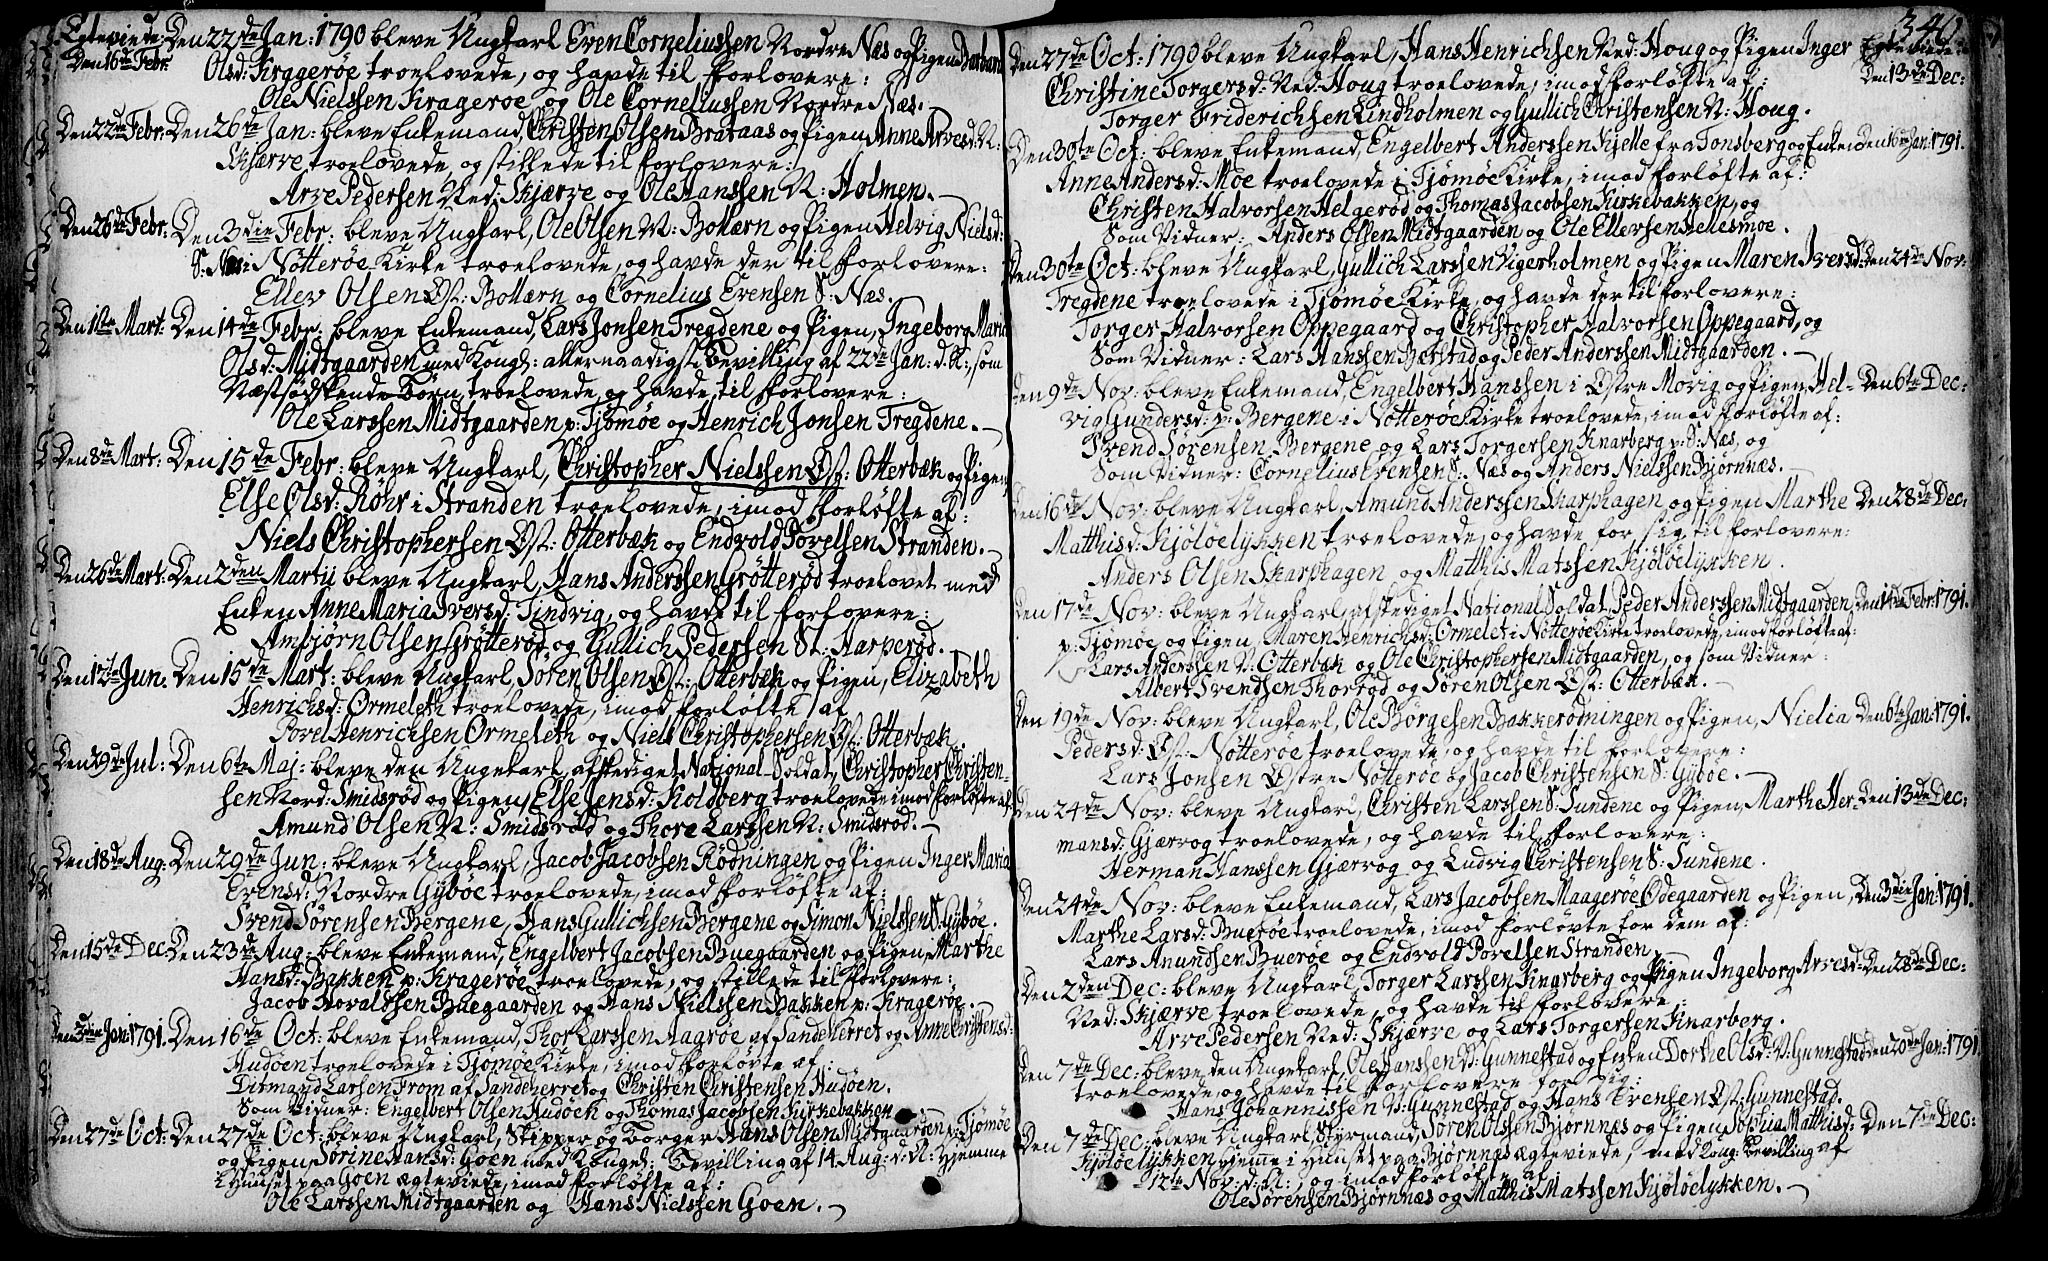 Egteviede: Den 22de Jan: 1790 bleve Ungkarl Even Corneliussen Nordre Næs og Pigen Barbara
Den 16de Febr: Olsd: Kraggerøe troelovede, og havde til Forlovere:
Ole Nielssen Kragerøe og Ole Corneliussen Nordre Næs.
Den 22de Febr: Den 26de Jan: bleve Enkemand, Christen Olsen Brataas og Pigen Anne Arvesd: N:
Skjærve troelovede, og stillede til Forlovere:
Arve Pedersen Ned: Skjærve og Ole Hanssen N: Holmen.
Den 26de Febr: Den 3die Febr: bleve Ungkarl, Ole Olsen N: Bollærn og Pigen Helvig Nielsd:
S: Næs i Nøtterøe Kirke troelovede, og havde der til Forlovere:
Ellev Olsen Øst: Bollærn og Cornelius Evensen S: Næs.
Den 11te Mart: Den 14de Febr: bleve Enkemand, Lars Jonsen Tregdene og Pigen, Ingeborg Maria
Olsd: Midtgaarden med Kongl: allernaadigst Bevilling af 22de Jan: d. A:, som
Næstsødskende Børn, troelovede, og havde, til Forlovere:
Ole Larssen Midtgaarden p: Tjømøe og Henrich Jonsen Tregdene.
Den 8de Mart: Den 15de Febr: bleve Ungkarl, Christopher Nielssen Øst: Otterbæk og Pigen
Else Olsd: Røhr i Stranden troelovede, imod Forløfte af:
Niels Christophersen Øst: Otterbæk og Endvold Povelsen Stranden.
Den 26de Mart: Den 2den Martii bleve Ungkarl, Hans Anderssen Grøtterød troelovet med
Enken Anne Maria Iversd: Tindvig, og havde til Forlovere:
Ambjørn Olsen Grøtterød og Gullich Pedersen St: Harperød.
Den 12te Jun. Den 15de Mart: bleve Ungkarl Søren Olsen Øst: Otterbæk og Pigen, Elizabeth
Henrichsd: Ormeleth troelovede, imod Forløfte af
Povel Henrichsen Ormeleth og Niels Christophersen Øst: Otterbæk
Den 29de Jul: Den 6te Maj: bleve den Ungekarl, afskediget National-Soldat, Christopher Christen-
sen Nord: Smidsrød og Pigen, Else Jensd: Koldberg troelovede imod Forløfte af
Amund Olsen N: Smidsrød og Thore Larssen N: Smidsrød.
Den 18de Aug: Den 29de Jun: bleve Ungkarl, Jacob Jacobsen Rødningen og Pigen Inger Maria
Evensd: Nordre Gybøe troelovede, imod Forløfte af:
Svend Sørensen Bergene, Hans Gullichsen Bergene og Simon Nielssen S: Gybøe.
Den 15de Dec: Den 23de Aug: bleve Enkemand, Engelbert Jacobsen Buegaarden og Pigen Marthe
Hansd: Bakken p: Kragerøe troelovede, og stillede til Forlovere:
Jacob Hovaldssen Buegaarden og Hans Nielssen Bakken p: Kragerøe.
Den 3die Jan: 1791. Den 16de Oct: bleve Enkemand, Thor Larssen Aagrøe af Sandeherret og Anne Christensd:
Hudøen troelovede i Tjømøe Kirke, imod Forløvte af:
Ditmand Larsen From af Sandeherret og Christen Christensen Hudøen.
Som Vidner: Engelbert Olsen Hudøek og Thomas Jacobsen Kirkebakken
Den 27de Oct: Den 27de Oct: bleve Ungkarl, Skipper og Borger Hans Olsen Midtgaarden p: Tjømøe
og Pigen Sørine Hansd: Goen med Kongel: Bevilling af 14 Aug: d: A: hjemme
i Huuset paa Goen ægteviede, imod Forløfte af:
Ole Larssen Midtgaarden og Hans Nielssen Goen.
340.
Den 27de Oct: 1790 bleve Ungkarl, Hans Henrichsen Ned: Houg og Pigen Inger Egteviede:
Christine Torgersd: Ned: Houg troelovede, imod Forløfte af: Den 13de Dec:
Torger Friderichsen Lindholmen og Gullich Christensen N: Houg.
Den 30te Oct: bleve Enkemand, Engelbert Anderssen Kjelle fra Tønsberg og Enken Den 16de Jan: 1791.
Anne Andersd: Moe troelovede i Tjømøe Kirke, imod Forløfte af:
Christen Halvorsen Helgerød og Thomas Jacobsen Kirkebakken, og
Som Vidner: Anders Olsen Midtgaarden og Ole Ellevsen Hellesmoe.
Den 30te Oct: bleve Ungkarl, Gullich Larssen Vigerholmen og Pigen Maren Iversd: Den 24de Nov:
Tregdene troelovede i Tjømøe Kirke, og havde der til Forlovere:
Torger Halvorsen Oppegaard og Christopher Halvorsen Oppegaard, og
Som Vidner: Lars Hanssen Barstad og Peder Anderssen Midtgaarden.
Den 9de Nov: bleve Enkemand, Engelbert Hanssen i Østre Movig og Pigen, Hel- Den 6te Dec:
vig Gundersd: p: Bergene i Nøtterøe Kirke troelovede, imod Forløfte af:
Svend Sørensen Bergene og Lars Torgersen Knarberg p: S: Næs, og
Som Vidner: Cornelius Evensen S: Næs og Anders Nielssen Bjørnnæs.
Den 16de Nov: bleve Ungkarl, Amund Anderssen Skarphagen og Pigen Marthe Den 28de Dec:
Matthisd: Kjøløelykken troelovede, og havde for sig til Forlovere:
Anders Olsen Skarphagen og Matthis Matssen Kjøløelykken.
Den 17de Nov: bleve Ungkarl, afskediget National Soldat, Peder Anderssen Midtgaarden Den 1te Febr: 1791.
p: Tjømøe og Pigen, Maren Henrichsd: Ormelet i Nøtterøe Kirke troelovede, imod Forløfte af:
Lars Anderssen N: Otterbæk og Ole Christophersen Midtgaarden, og som Vidner:
Albert Svendsen Thorrød og Søren Olsen Øst: Otterbæk.
Den 19de Nov: bleve Ungkarl, Ole Børgesen Bakkerødningen og Pigen, Nielia Den 6te Jan: 1791.
Pedersd: Øst: Nøtterøe troelovede, og havde til Forlovere:
Lars Jonsen Østre Nøtterøe og Jacob Christensen S: Gybøe.
Den 24de Nov: bleve Ungkarl, Christen Larssen S: Sundene og Pigen, Marthe Her- Den 13de Dec:
mansd: Gjærrog troelovede, og havde til Forlovere:
Herman Hanssen Gjærrog og Ludvig Christensen S: Sundene.
Den 24de Nov: bleve Enkemand, Lars Jacobsen Maagerøe Ødegaarden og Pigen, Den 3die Jan: 1791.
Marthe Larsd: Buerøe troelovede, imod Forløvte for dem af:
Lars Anundsen Buerøe og Endvold Povelsen Stranden
Den 2den Dec: bleve Ungkarl, Torger Larssen Knarberg og Pigen Ingeborg Arvesd: Den 28de Dec:
Ned: Skjærve troelovede, og havde til Forlovere:
Arve Pedersen Ned: Skjærve og Lars Torgersen Knarberg.
Den 7de Dec: bleve den Ungekarl, Ole Hanssen V: Gunnestad og Enken Dorthe Olsd: V: Gunnestad Den 20de Jan: 1791.
troelovede, og havde til Forlovere for sig:
Hans Johannissen V: Gunnestad og Hans Evensen Øst: Gunnestad.
Den 7de Dec: bleve Ungkarl, Styrmand, Søren Olssen Bjørnnæs og Pigen Sophia Matthisd: Den 7de Dec:
Kjøløelykken hjemme i Huuset paa Bjørnnæs ægteviede, med Kong: Bevilling af
12te Nov: d: A:, og imod Forløfte af
Ole Sørensen Bjørnnæs og Matthis Matssen Kjøløelykken.